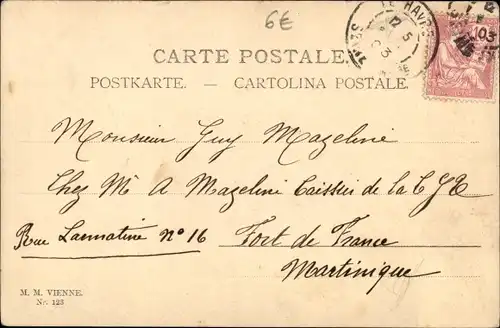 6€
LE HAVRE
12
5
03
CARTE POSTALE.
POSTKARTE. — CARTOLINA POSTALE.
Monsieur Guy Mazeline
Chez Mr A Mazeline Caissier de la C G T
Rue Lamartine n° 16 Fort de France
Martinique
M. M. VIENNE.
Nr. 123